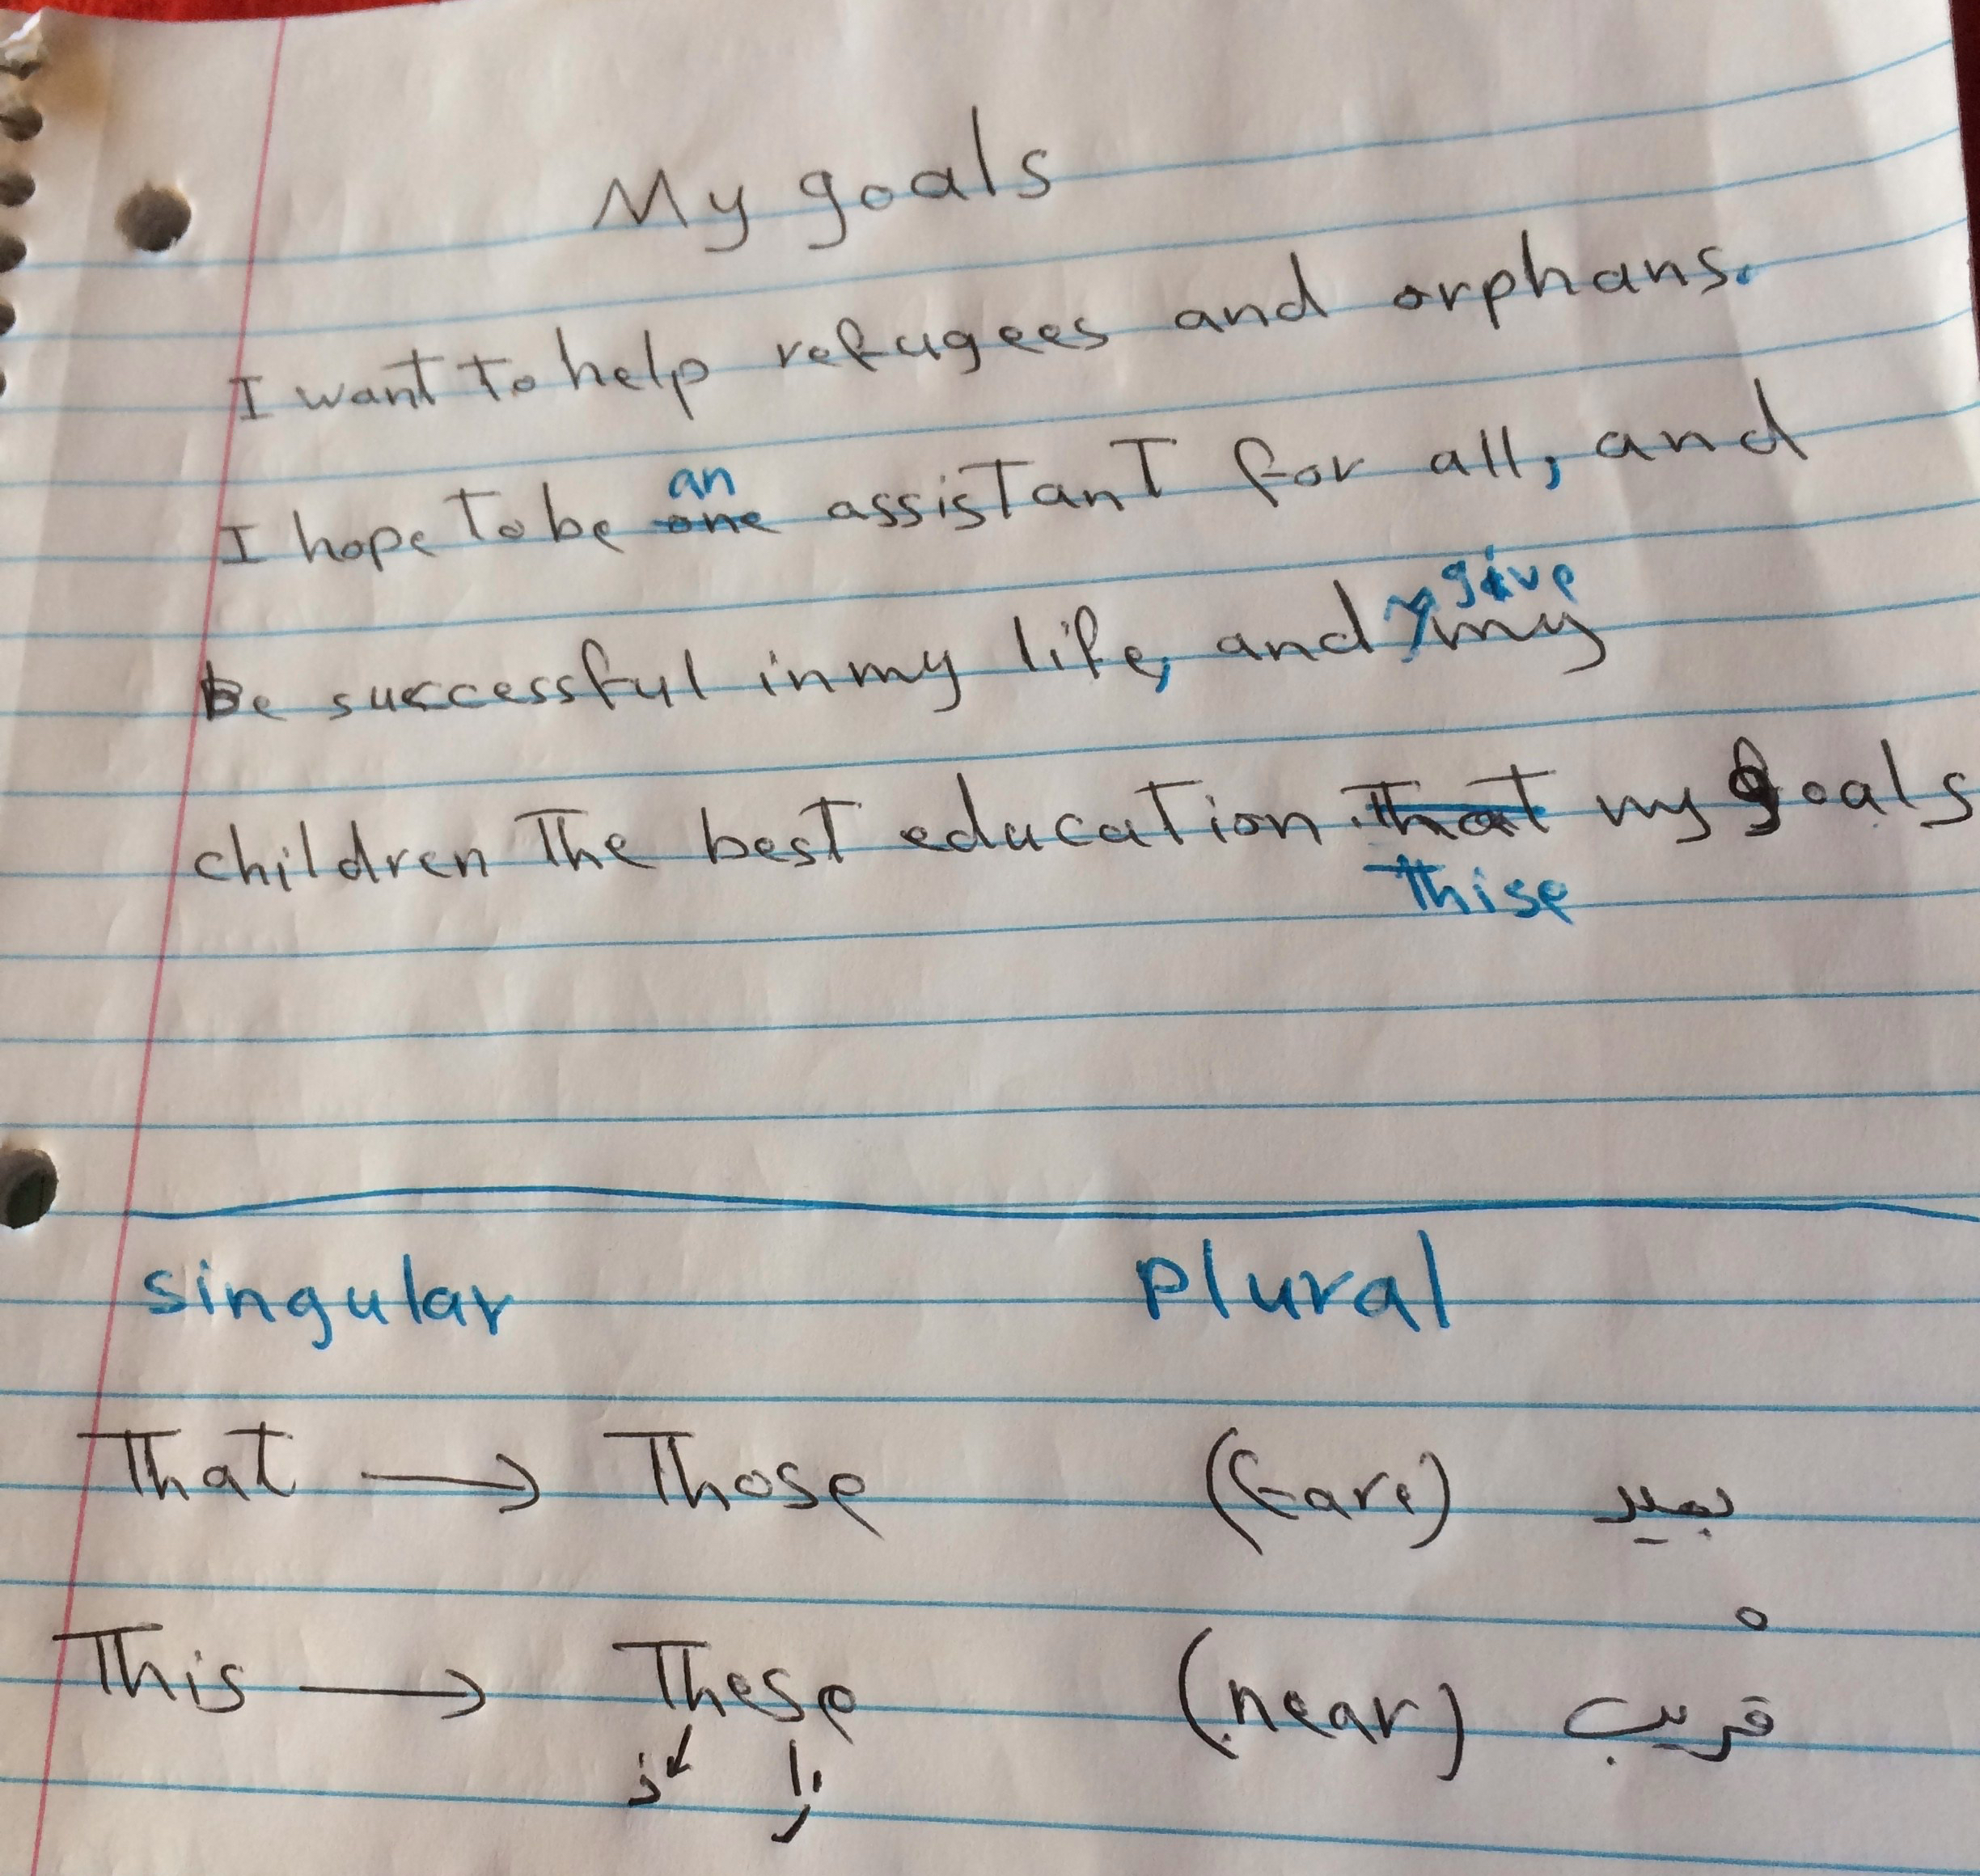 My goals
I want to help refugees and orphans.
an
I hope to be one assistant for all, and
give
be successful in my life, and my
children the best education. That my goals
thise
singular plural
That → Those (fare) بعيد
This → These (near) قريب